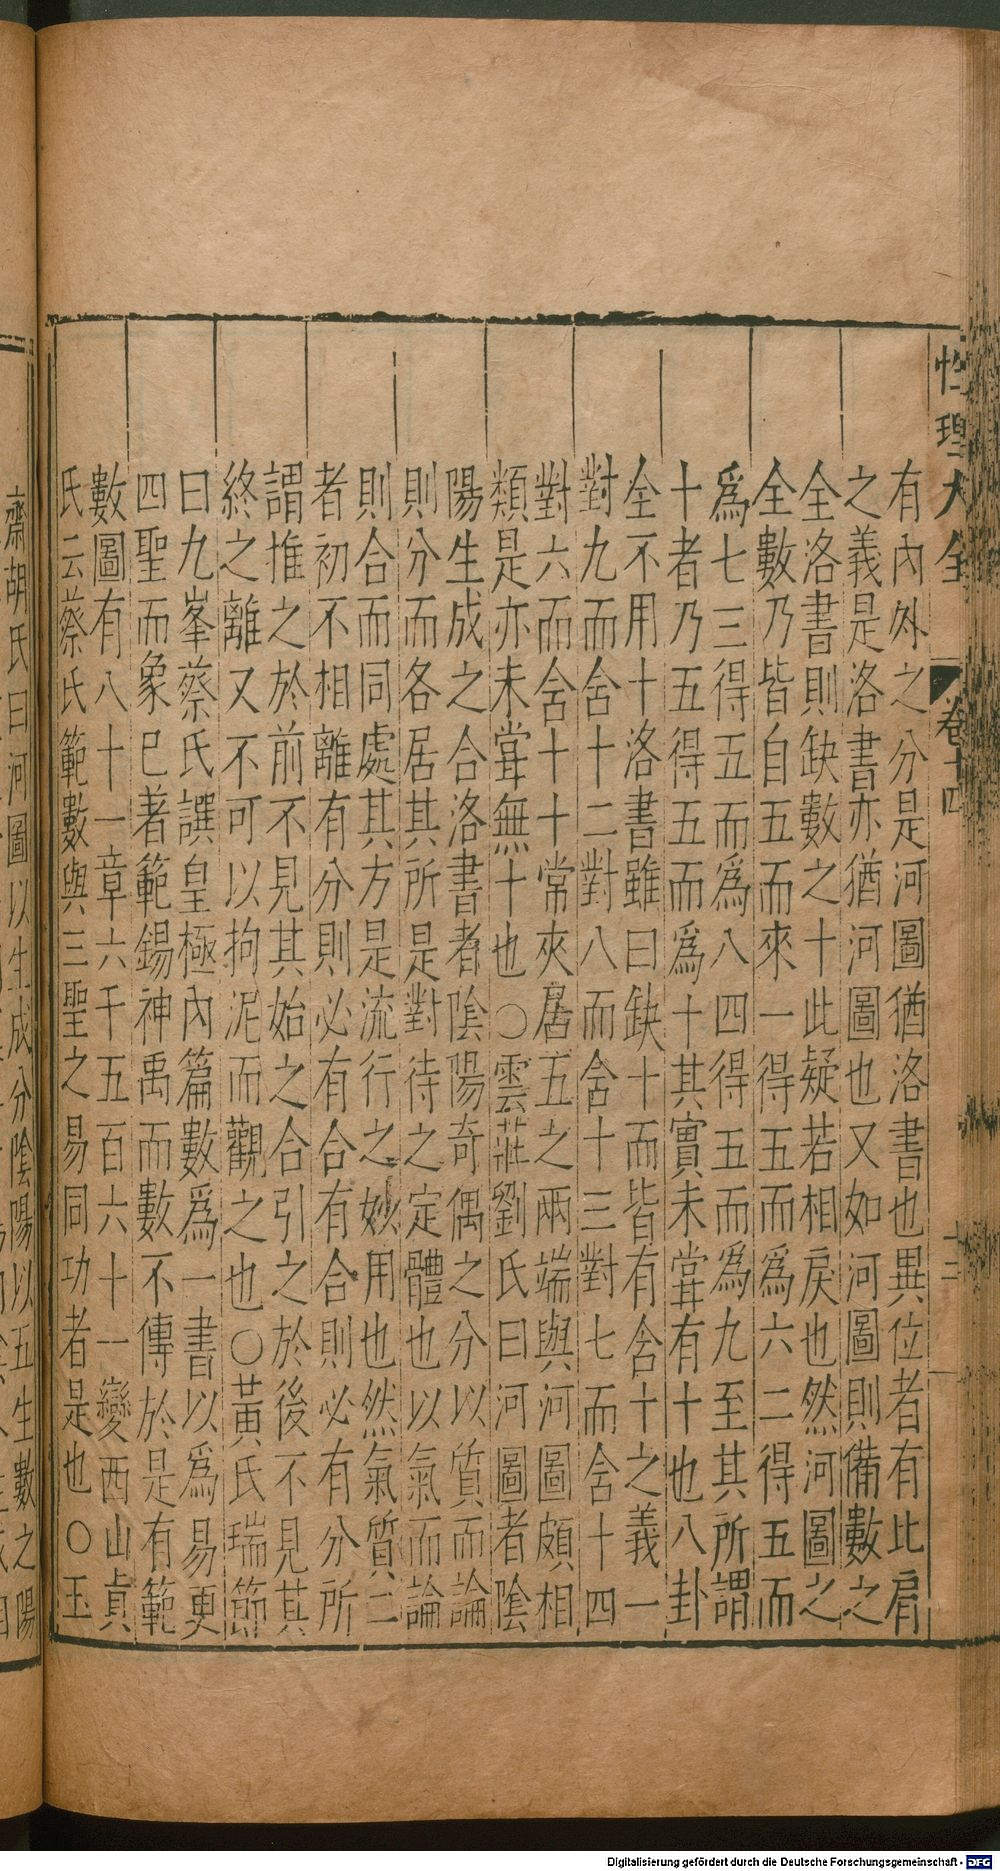 性理大全
卷十四
十三
有內外之分是河圖猶洛書也異位者有比肩
之義是洛書亦猶河圖也又如河圖則備數之
全洛書則缺數之十此疑若相戾也然河圖之
全數乃皆自五而來一得五而爲六二得五而
爲七三得五而爲八四得五而爲九至其所謂
十者乃五得五而爲十其實未甞有十也八卦
全不用十洛書雖曰缺十而皆有含十之義一
對九而含十二對八而含十三對七而含十四
對六而含十十常夾居五之兩端與河圖頗相
類是亦未甞無十也○雲莊劉氏曰河圖者陰
陽生成之合洛書者陰陽奇偶之分以質而論
則分而各居其所是對待之定體也以氣而論
則合而同處其方是流行之妙用也然氣質二
者初不相離有分則必有合有合則必有分所
謂推之於前不見其始之合引之於後不見其
終之離又不可以拘泥而觀之也○黃氏瑞節
曰九峯蔡氏譔皇極內篇數爲一書以爲易更
四聖而象已著範錫神禹而數不傳於是有範
數圖有八十一章六千五百六十一變西山貞
氏云蔡氏範數與三聖之易同功者是也○玉
齋胡氏曰河圖以生成分陰陽以五生數之陽
Digitalisierung gefördert durch die Deutsche Forschungsgemeinschaft - DFG